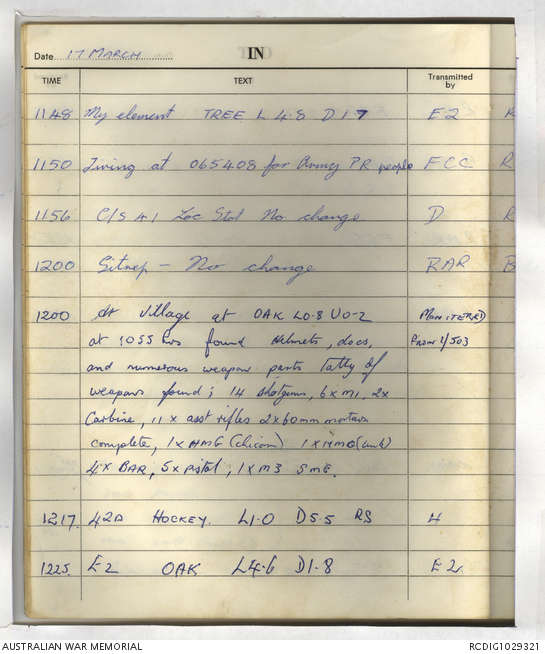 Date 17 MARCH IN
TIME TEXT Transmitted by
1148 My element TREE L 4.8 D 1.7 E2 R
1150 Firing at 065408 for Army PR people FCC R
1156 C/S A1 Loc Stat No change D R
1200 Sitrep - No change RAR B
1200 At village at OAK L0.8 U0.2 MONITERED
at 1055 hrs found Helmets, docs, FROM 1/503
and numerous weapon parts Tally of
weapons found; 14 shotguns, 6 x M1, 2x
Carbine, 11 x asst rifles 2x60mm mortars
complete, 1 x HMG (chicom) 1 x MMG
4 x BAR, 5 x pistol, 1 x M3 SMG.
1217. 42A HOCKEY. L1.0 D5.5 RS 4
1225. E2 OAK L4.6 D1.8 E2
AUSTRALIAN WAR MEMORIAL RCDIG1029321